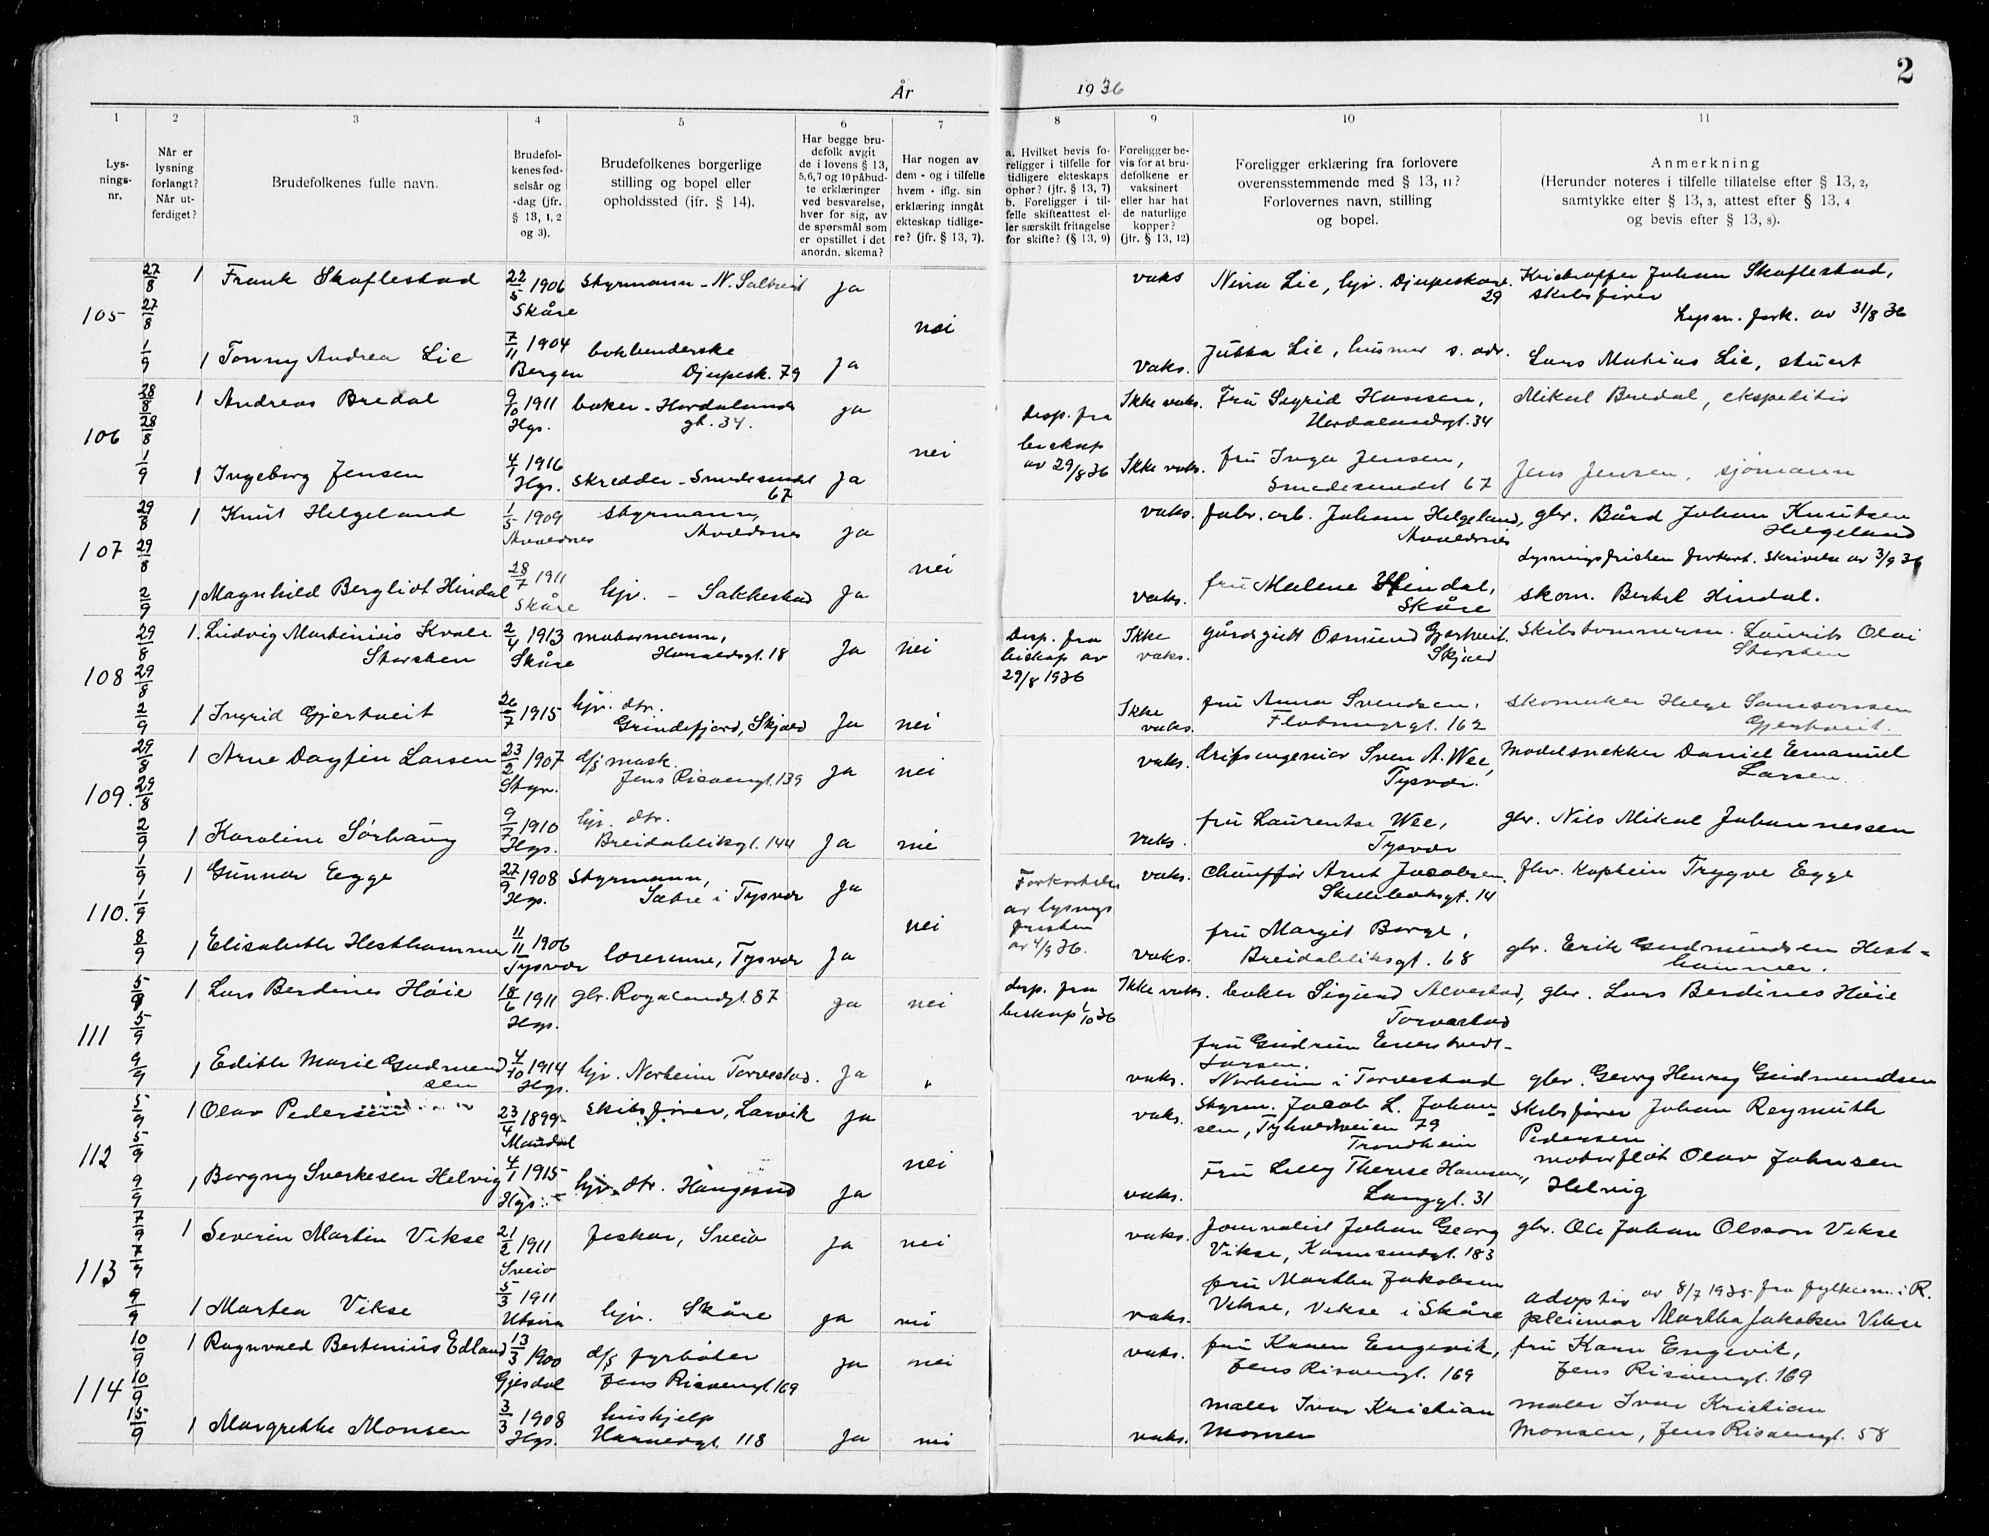 År 1936
2
1 2 3 4 5 6 7 8 9 10 11
Lys-
nings-
nr.
Når er
lysning
forlangt?
Når ut-
ferdiget?
Brudefolkenes fulle navn.
Brudefol-
kenes fød-
selsår og
-dag (jfr.
§ 13, 1, 2
og 3).
Brudefolkenes borgerlige
stilling og bopel eller
opholdssted (ifr. § 14).
Har begge bru-
defolk avgit
de i lovens § 13,
5, 6, 7 og 10 påbud-
te erklæringer
ved besvarelse,
hver for sig, av
de spørsmål som
er opstillet i det
anordn. skema?
Har nogen av
dem - og i tilfelle
hvem - iflg. sin
erklæring inngåt
ekteskap tidlige-
re? (jfr. § 13, 7).
a. Hvilket bevis fo-
religger i tilfelle for
tidligere ekteskaps
ophør? (jfr. § 13, 7)
b. Foreligger i til-
felle skifteattest el-
ler særskilt fritagelse
for skifte? (§ 13, 9)
Foreligger be-
vis for at bru-
defolkene er
vaksinert
eller har hat
de naturlige
kopper?
(jfr. § 13, 12)
Foreligger erklæring fra forlovere
overensstemmende med § 13, 11?
Forlovernes navn, stilling
og bopel.
Anmerkning
(Herunder noteres i tilfelle tillatelse efter § 13, 2,
samtykke efter § 13, 3, attest efter § 13, 4
og bevis efter § 13, 8).
105 27/8 27/8 1 Frank Skaflestad 22/5 1906 Styrmann - N. ja vaks Nina Lie, hjv. 29 Johan Skaflestad,
Skåre skibsfører
nei Lysn. fork. av 31/8 36
1/9 1 Tonny Andrea Lie 7/11 1904 bokbinderske ja vaks. Jutta Lie, husmor s. adr. Lars Matias Lie, stuert
Bergen Djupesk. 79
106 28/8 28/8 1 Andreas Bredal 9/10 1911 baker - Hordalands ja Disp. fra Ikke vaks. Fru Sigrid Hansen, Mikal Bredal, ekspeditør
Hgs. gt. 34. nei biskop Hordalandsgt. 34
1/9 1 Ingeborg Jensen 4/1 1916 skredder - Smedesundet ja av 29/8 36 Ikke vaks. fru Inga Jensen, Jens Jensen, sjømann
Hgs. 67 Smedesundet 67
107 29/8 29/8 1 Knut Helgeland 1/5 1909 Styrmann, ja vaks. fabr. arb. Johan Helgeland, gbr. Bård Johan Knutsen
Avaldsnes Avaldsnes nei Avaldsnes Helgeland
Lysningsfristen forkort. Skrivelse av 3/9 36
2/9 1 Magnhild Berglidt Hindal 28/7 1911 hjv. - Sakkestad ja vaks. fru Malene Hindal, skom. Bertel Hindal.
Skåre Skåre
108 29/8 29/8 1. Ludvig Martinius Kvale 2/4 1913 motormann, ja nei Disp. fra Ikke gårdsgutt Osmund Gjertveit. Skibstømmerm. Laurits Olai
Storsten Skåre 18 biskop av vaks. Skjold Storsten
29/8 1936
2/9 1 Ingrid Gjertveit 26/7 1915 hjv. dtr. ja nei Ikke fru Anna Svendsen, Skomaker Helge Samsonsen
Grindefjord, Skjold vaks. Flotmyrgt. 162 Gjertveit.
109. 29/8 29/8 1 Arne Dagfin Larsen 23/2 1907 d/s mask. ja nei vaks. driftsingeniør Sven A. Wee, Modelsnekker Daniel Emanuel
Jens Risøengt. 139 Tysvær. Larsen.
2/9 1 Karoline Sørhaug 9/7 1910 hjv. dtr. ja nei vaks. fru Laurentse Wee, gbr. Nils Mikal Johannessen
Hgs. Breidablikgt. 144 Tysvær
110. 1/9 1/9 1 Gunnar Egge 27/9 1908 Styrmann, ja Forkortelse vaks. Chauffør Arnt Jacobsen, fhv. kaptein Trygve Egge
Hgs. i Tysvær nei av lysnings 14
fristen
8/9 1 Elisabeth Hesthammer 11/11 1906 lærerinne, Tysvær ja av 4/9 36. vaks. fru Margit Borge, gbr. Erik Gudmundsen Hest-
Tysvær Breidabliksgt. 68 hammer.
111 5/9 5/9 1 Lars Berdines Høie 18/6 1911 gbr. Rogalandgt. 87 ja nei disp. fra Ikke vaks. baker Sigurd Alvestad, gbr. Lars Berdines Høie
Hgs. biskop 1/10 36 Torvastad
fru Gudrun
Larsen.
9/9 1 Edith Marie Gudmund 4/10 1914 hjv. Norheim Torvestad. ja " vaks. Norheim i Torvestad gbr. Georg Henry Gudmundsen
sen Hgs.
112 5/9 5/9 1 Olav Pedersen 23/4 1899 Skibsfører, Larvik ja vaks. Styrm. Jacob L. Johan- Skibsfører Johan Reymuth
Mandal nei sen, Tyholdtveien 79 Pedersen
Trondheim
9/9 1 Borgny Sverkesen Helvig 4/1 1915 hjv. dtr. Haugesund ja vaks. Fru Lilly Therese Hansen, motorfløt Olav Johnsen
Hgs. Langgt. 31 Helvig
113 7/9 7/9 1 Severin Martin Vikse 21/2 1911 fisker, Sveio ja nei vaks. Journalist Johan Georg gbr. Ole Johan Olsson Vikse
Sveio Vikse, Karmsundgt. 183
9/9 1 Martea Vikse 5/3 1911 hjv. Skåre ja nei vaks. fru Martha Jakobsen adoptiv av 8/7 1935 fra fylkesm. i R.
Utsira Vikse, Vikse i Skåre pleiemor Martha Jakobsen Vikse
114 10/9 10/9 1 Ragnvald Bertinius Edland 13/3 1900 d/s fyrbøter ja nei vaks. fru Karen Engevik, fru Karen Engevik,
Gjesdal Jens Risøengt. 169 Jens Risøengt. 169 Jens Risøengt. 169
15/9 1 Margrethe Monsen 3/3 1908 hushjelp ja nei vaks. maler Ivar Kristian maler Ivar Kristian
Hgs. 118 Monsen Monsen, Jens Risøengt. 58